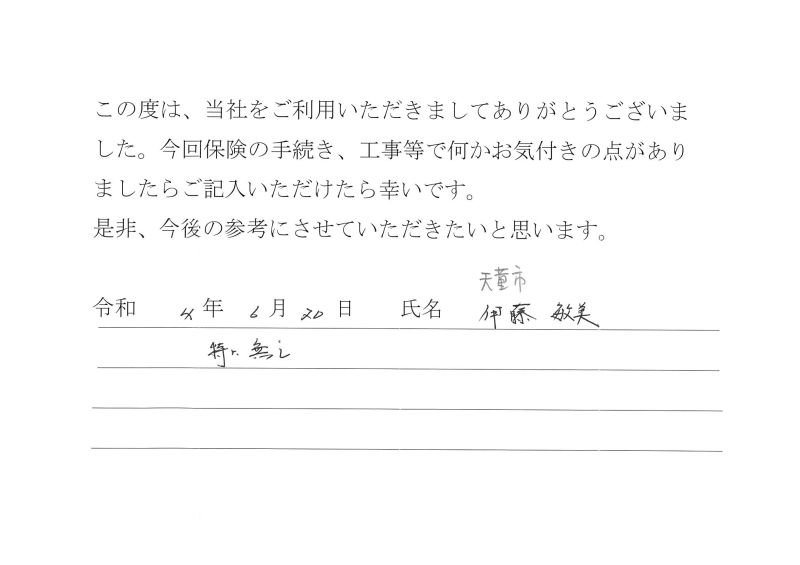 この度は、当社をご利用いただきましてありがとうございま
した。今回保険の手続き、工事等で何かお気付きの点があり
ましたらご記入いただけたら幸いです。
是非、今後の参考にさせていただきたいと思います。
天童市
令和 4年 6月 20日 氏名 伊藤 敏美
特に無し